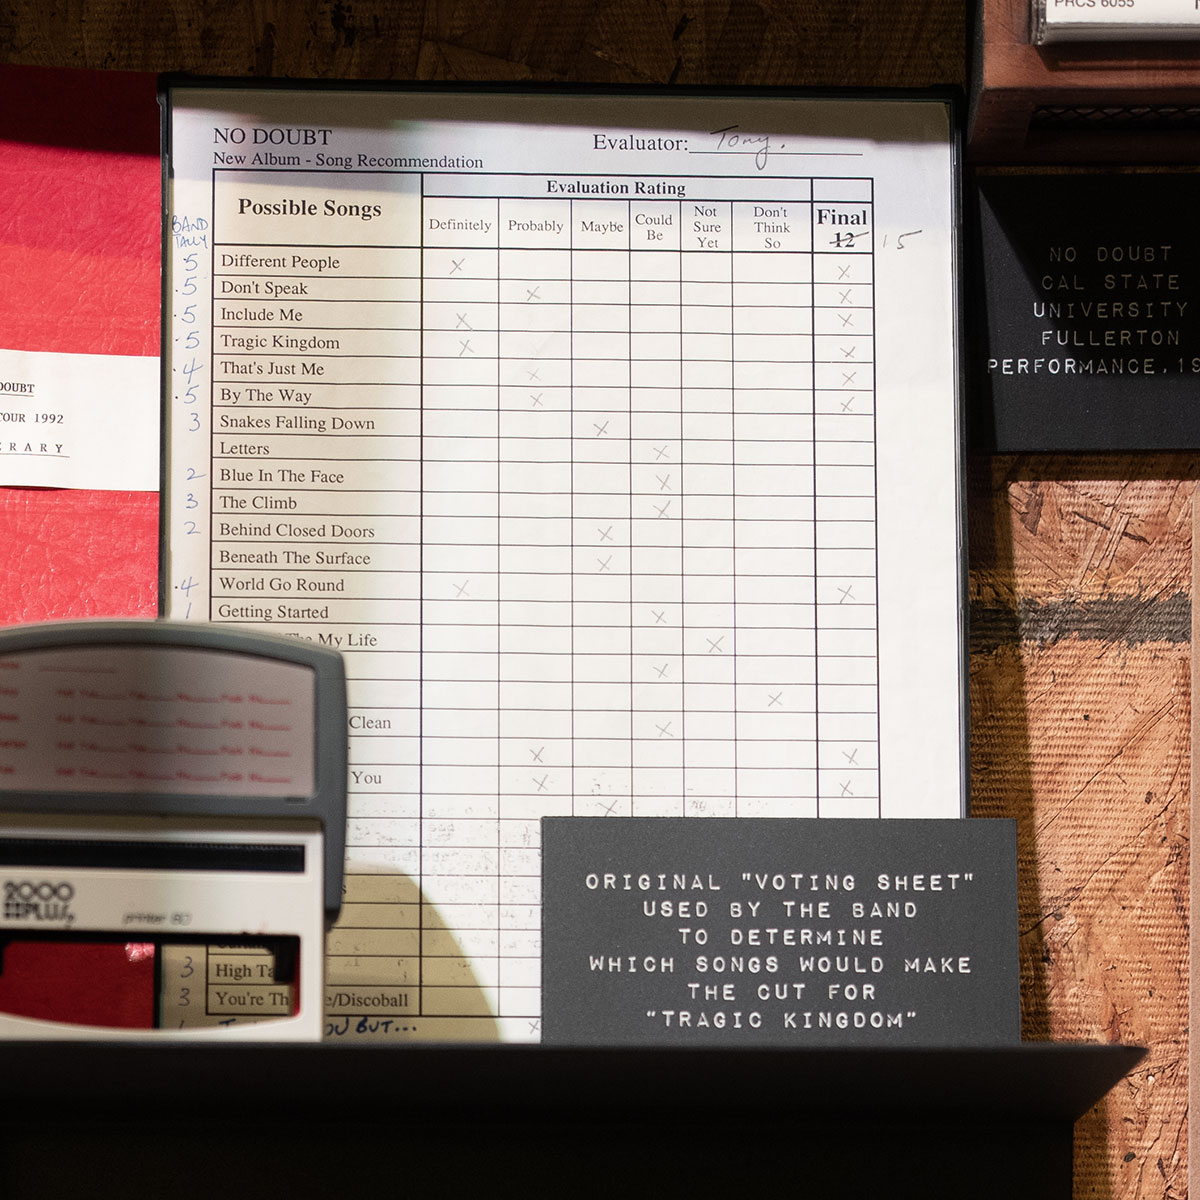 PRCS 6055
NO DOUBT
Evaluator: Tony.
New Album - Song Recommendation
Evaluation Rating
Possible Songs
Definitely
Probably
Maybe
Could Be
Not Sure Yet
Don't Think So
Final 12 15
BAND
TALLY
·5 Different People X X
·5 Don't Speak X X
·5 Include Me X X
·5 Tragic Kingdom X X
·4 That's Just Me X X
·5 By The Way X X
3 Snakes Falling Down X
Letters X
2 Blue In The Face X
3 The Climb X
2 Behind Closed Doors X
Beneath The Surface X
·4 World Go Round X X
1 Getting Started X
My Life X
X
X
Clean X
X X
You X X
X
3 High Ta
3 You're Th e/Discoball
OU BUT... X
DOUBT
TOUR 1992
ERARY
2000
PLUS
printer
NO DOUBT
CAL STATE
UNIVERSITY
FULLERTON
PERFORMANCE, 19
ORIGINAL "VOTING SHEET"
USED BY THE BAND
TO DETERMINE
WHICH SONGS WOULD MAKE
THE CUT FOR
"TRAGIC KINGDOM"